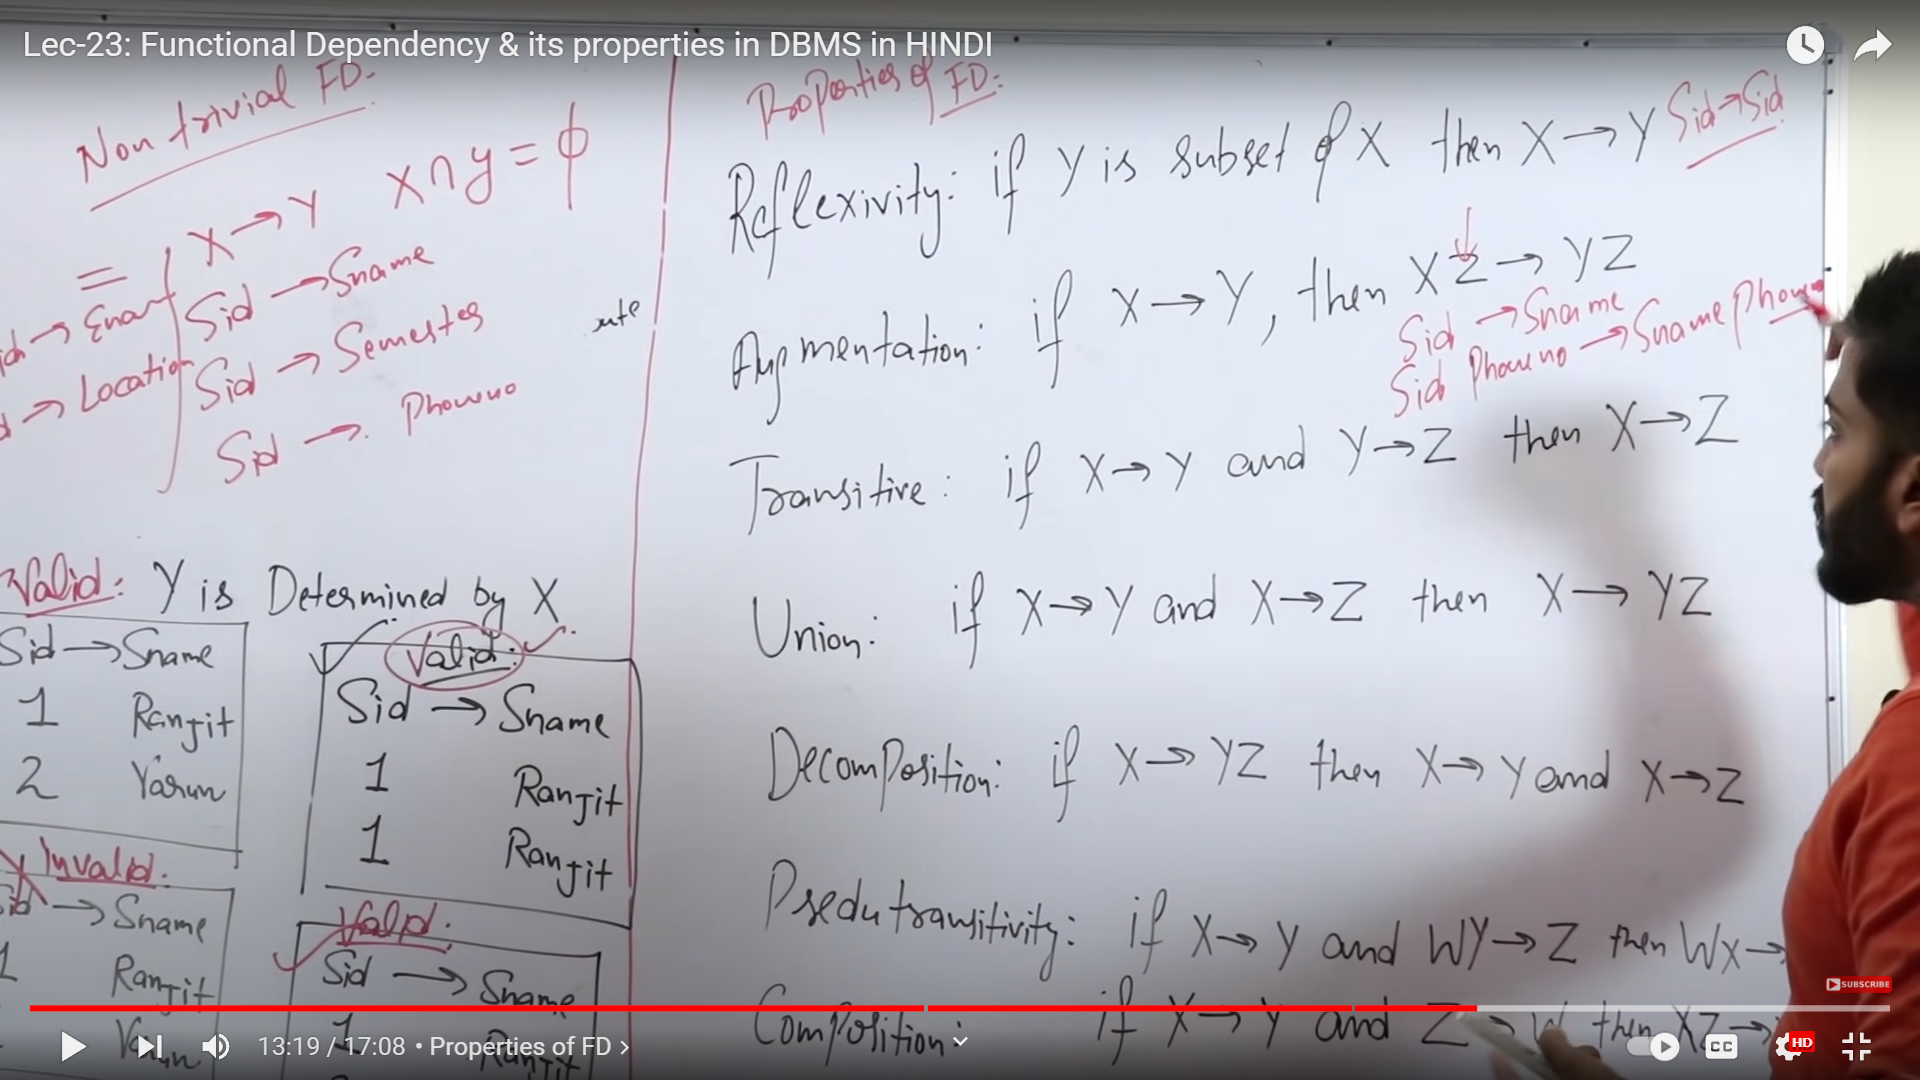 Lec-23: Functional Dependency & its properties in DBMS in HINDI
Non trivial FD-
X → Y X ∩ Y = ϕ
Sid → Sname
Sid → Semester
→ Location
Sid → Phoneno
Valid: Y is Determined by X
Sid → Sname
1 Ranjit
2 Varun
Valid.
Sid → Sname
1 Ranjit
1 Ranjit
Invalid.
Sid → Sname
1 Ranjit
Varun
Valid.
Sid → Sname
1 Ranjit
Properties of FD:
Reflexivity: if Y is subset of X then X → Y Sid → Sid
Augmentation: if X → Y, then XZ → YZ
Sid → Sname
Sid Phoneno → Sname Phoneno
Transitive: if X → Y and Y → Z then X → Z
Union: if X → Y and X → Z then X → YZ
Decomposition: if X → YZ then X → Y and X → Z
Psedutransitivity: if X → Y and WY → Z then WX →
Composition: if X → Y and Z → W then XZ →
SUBSCRIBE
13:19 / 17:08 • Properties of FD ›
CC
HD